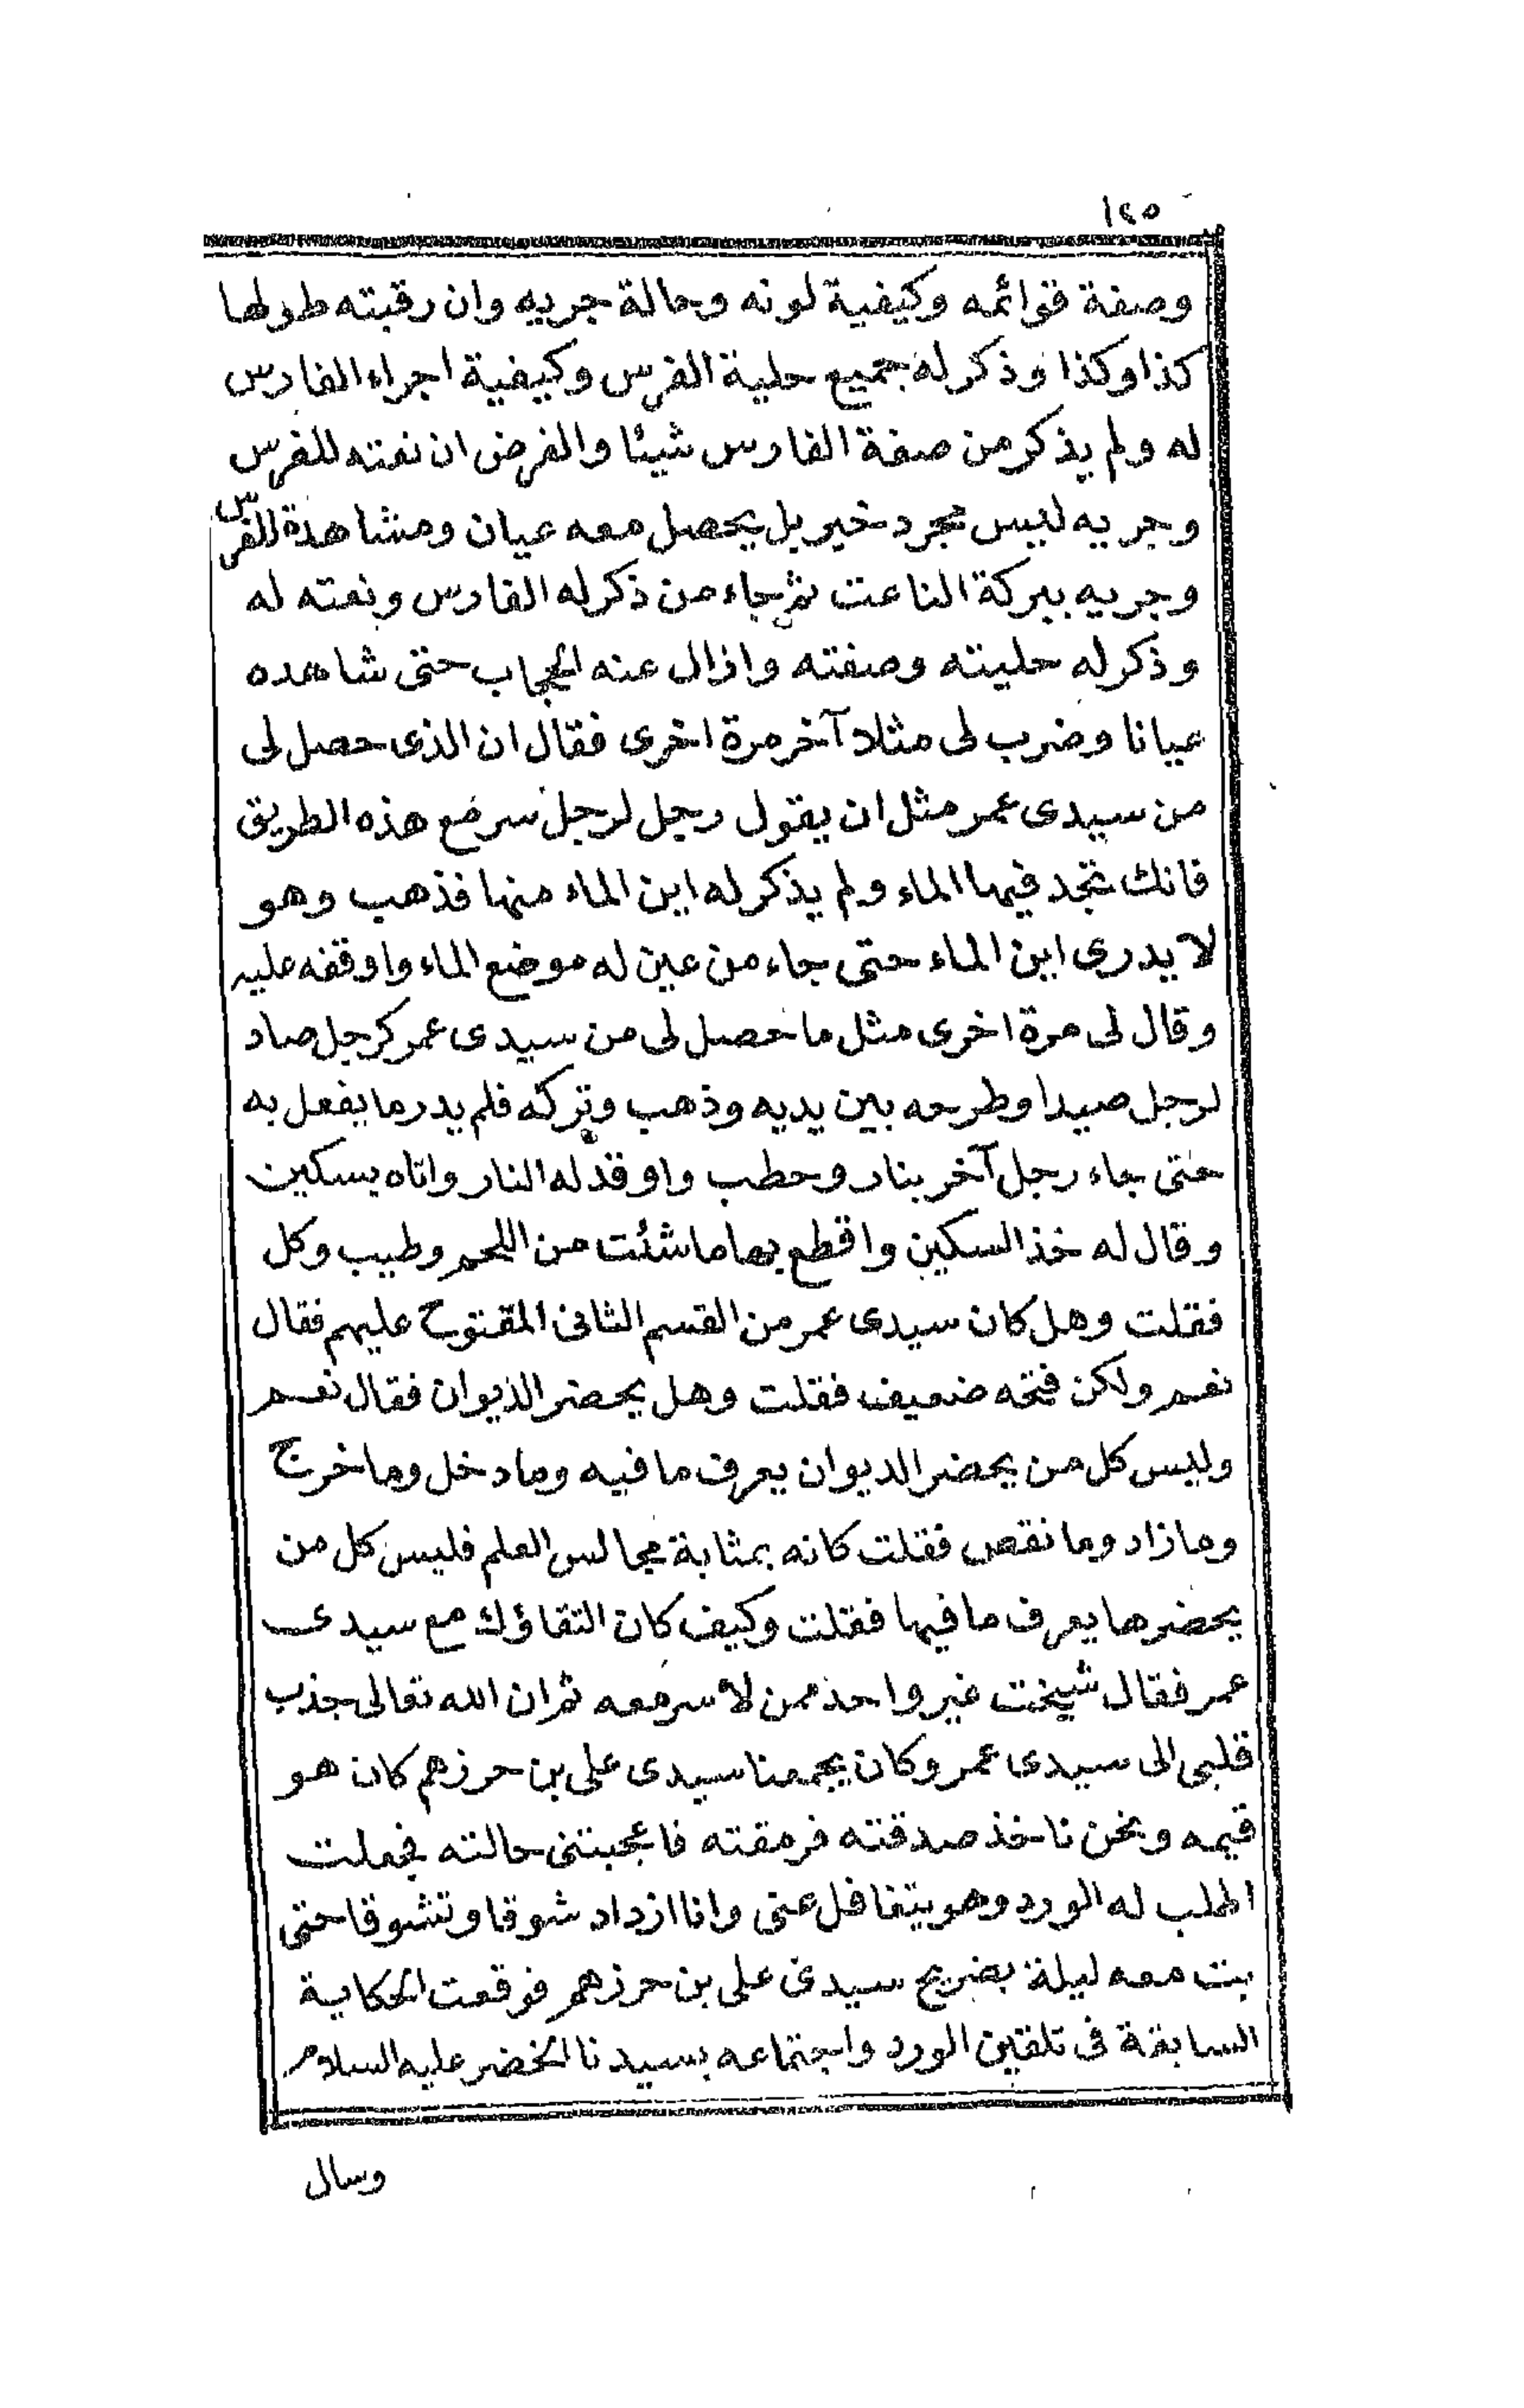 ١٢٥
وصفة قوائمه وكيفية لونه وحالة جريه وان رقبته طولها
كذا وكذا وذكر له جميع حلية الفرس وكيفية اجراء الفارس
له ولم يذكر من صفة الفارس شيئا والفرض ان نعته للفرس
وجريه ليس مجرد خبر بل يحصل معه عيان ومشاهدة للفرس
وجريه ببركة الناعت ثم جاء من ذكر له الفارس ونعته له
وذكر له حليته وصفته وازال عنه الحجاب حتى شاهده
عيانا وضرب لى مثلا آخر مرة اخرى فقال ان الذى حصل لى
من سيدى عمر مثل ان يقول رجل لرجل سر مع هذه الطريق
فانك تجد فيها الماء ولم يذكر له اين الماء منها فذهب وهو
لا يدرى اين الماء حتى جاء من عين له موضع الماء واوقفه عليه
وقال لى مرة اخرى مثل ما حصل لى من سيدى عمر كرجل صاد
لرجل صيدا وطرحه بين يديه وذهب وتركه فلم يدر ما يفعل به
حتى جاء رجل آخر بنار وحطب واوقد له النار واتاه بسكين
وقال له خذ السكين واقطع بها ما شئت من اللحم وطيب وكل
فقلت وهل كان سيدى عمر من القسم الثانى المفتوح عليهم فقال
نعم ولكن فتحه ضعيف فقلت وهل يحضر الديوان فقال نعم
وليس كل من يحضر الديوان يعرف ما فيه وما دخل وما خرج
وما زاد وما نقص فقلت كانه بمثابة مجالس العلم فليس كل من
يحضرها يعرف ما فيها فقلت وكيف كان التقاؤك مع سيدى
عمر فقال شيخت غير واحد ممن لا سر معه ثم ان الله تعالى جذب
قلبى الى سيدى عمر وكان يجمعنا سيدى على بن حرزهم كان هو
قيمه ونحن ناخذ صدقته فرمقته فاعجبتنى حالته فجعلت
اطلب له الورد وهو يتغافل عنى وانا ازداد شوقا وتشوقا حتى
بت معه ليلة بضريح سيدى على بن حرزهم فوقعت الحكاية
السابقة فى تلقين الورد واجتماعه بسيدنا الخضر عليه السلام
وسال